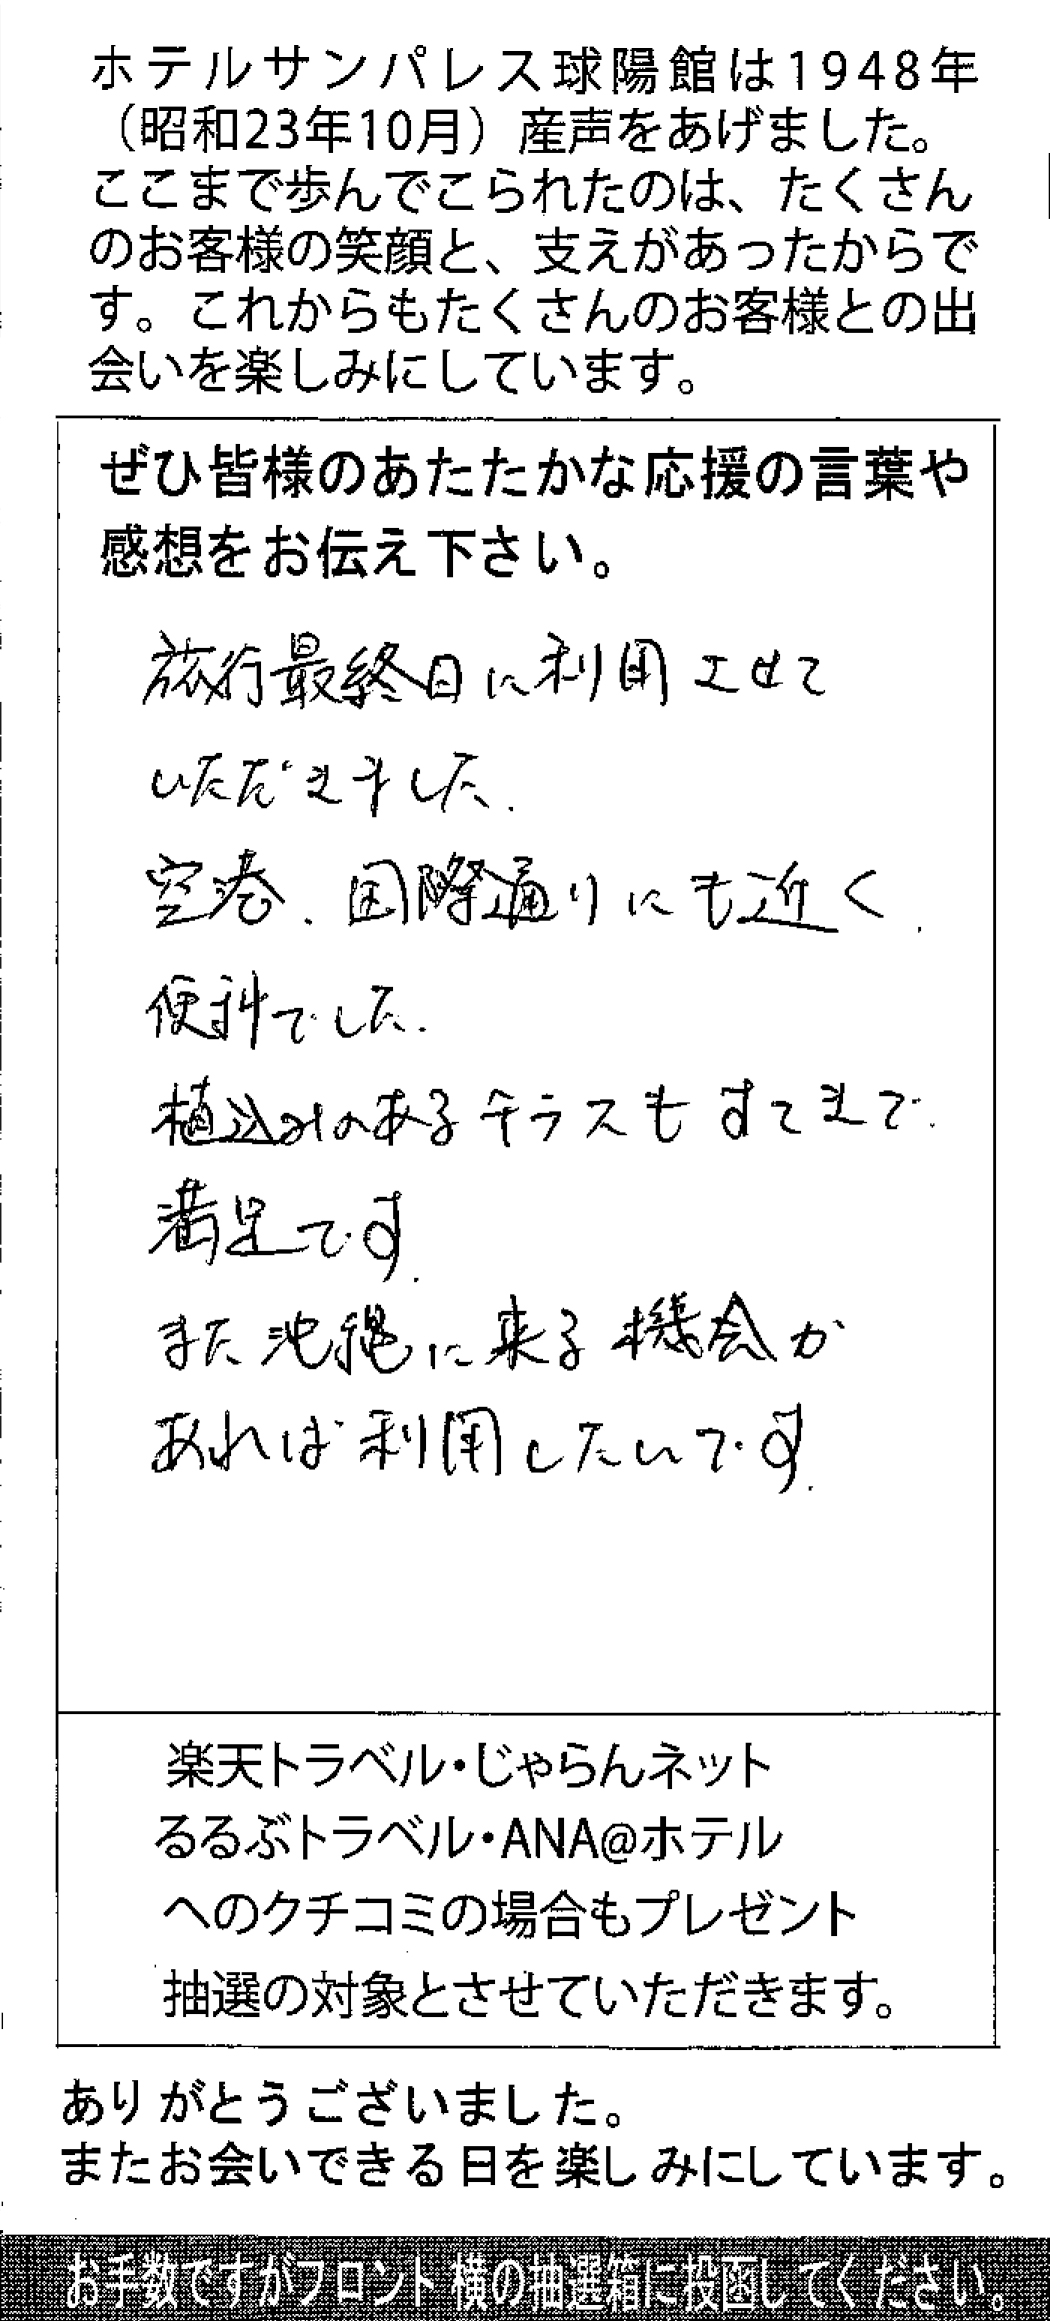 ホテルサンパレス球陽館は1948年
（昭和23年10月）産声をあげました。
ここまで歩んでこられたのは、たくさん
のお客様の笑顔と、支えがあったからで
す。これからもたくさんのお客様との出
会いを楽しみにしています。
ぜひ皆様のあたたかな応援の言葉や
感想をお伝え下さい。
旅行最終日に利用させて
いただきました.
空港、国際通りにも近く、
便利でした.
植込みのあるテラスもすてきで.
満足です.
また沖縄に来る機会が
あれば利用したいです.
楽天トラベル・じゃらんネット
るるぶトラベル・ANA@ホテル
へのクチコミの場合もプレゼント
抽選の対象とさせていただきます。
ありがとうございました。
またお会いできる日を楽しみにしています。
お手数ですがフロント横の抽選箱に投函してください。